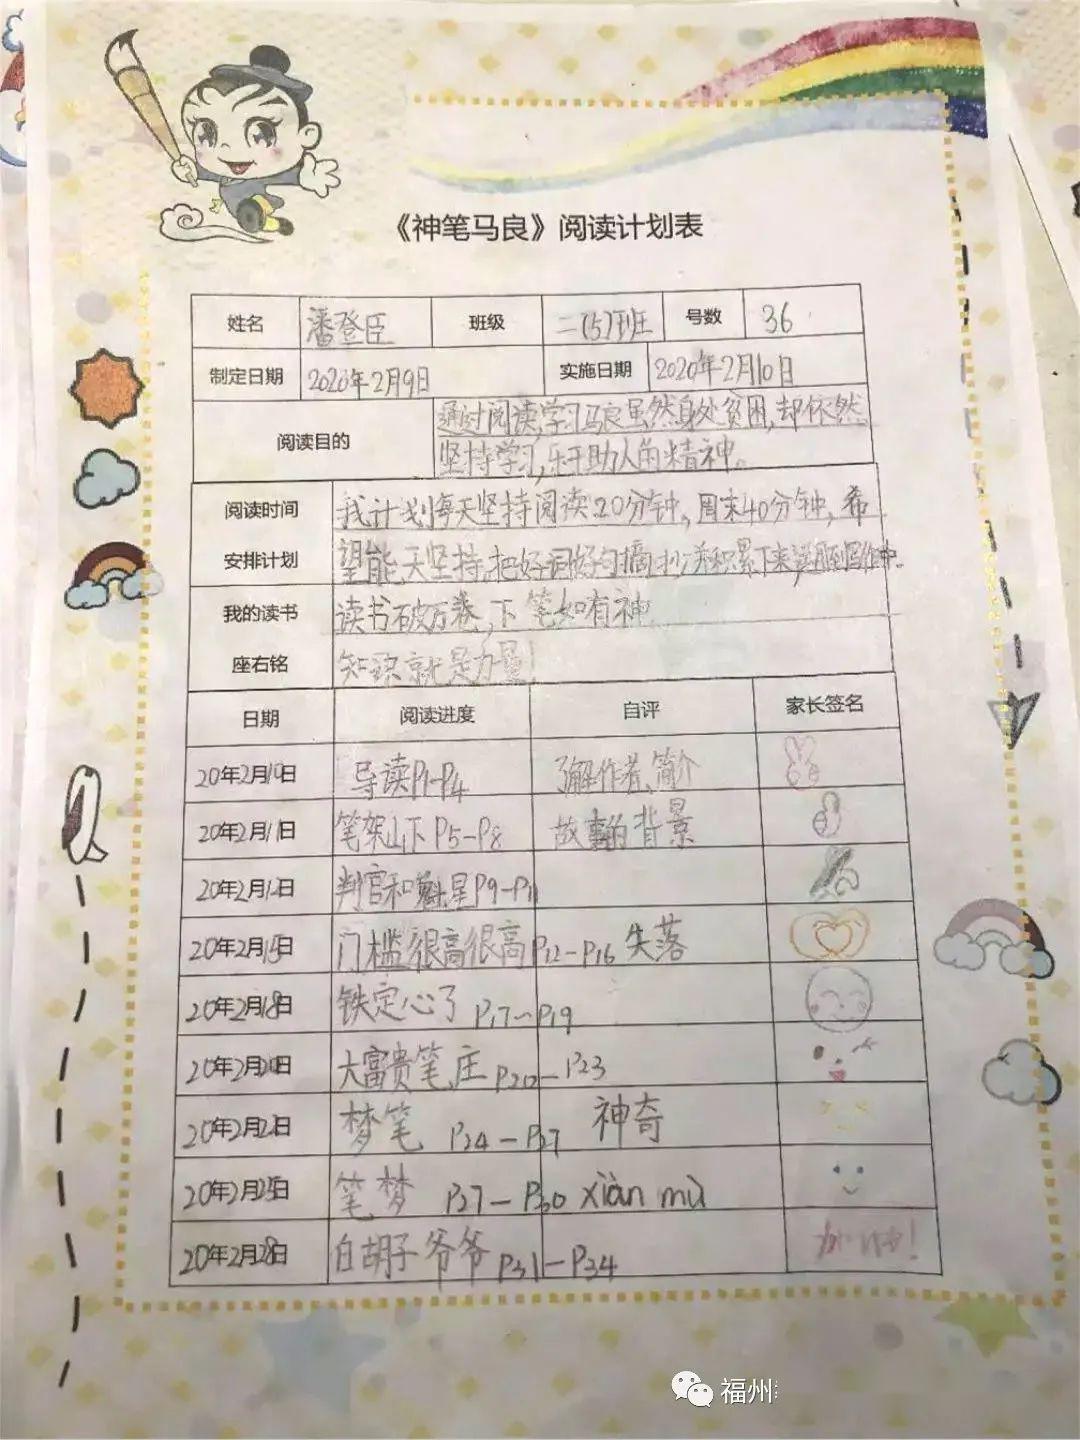 《神笔马良》阅读计划表
姓名 潘登臣 班级 二(5)班 号数 36
制定日期 2020年2月9日 实施日期 2020年2月10日
阅读目的 通过阅读,学习马良虽然身处贫困,却依然
坚持学习,乐于助人的精神。
阅读时间 我计划每天坚持阅读20分钟,周末40分钟,希
安排计划 望能天坚持。把好词好句摘抄并积累下来运用到写作中。
我的读书 读书破万卷,下笔如有神
座右铭 知识就是力量!
日期 阅读进度 自评 家长签名
20年2月10日 导读P1-P4 了解作者、简介
20年2月11日 笔架山下P5-P8 故事的背景
20年2月12日 判官和魁星P9-P11
20年2月15日 门槛很高很高P12-P16 失落
20年2月18日 铁定心了 P17-P19
20年2月20日 大富贵笔庄P20-P23
20年2月日 梦笔 P24-P27 神奇
20年2月25日 笔梦 P27-P30 xiàn mù
20年2月28日 白胡子爷爷P31-P34 加油!
福州